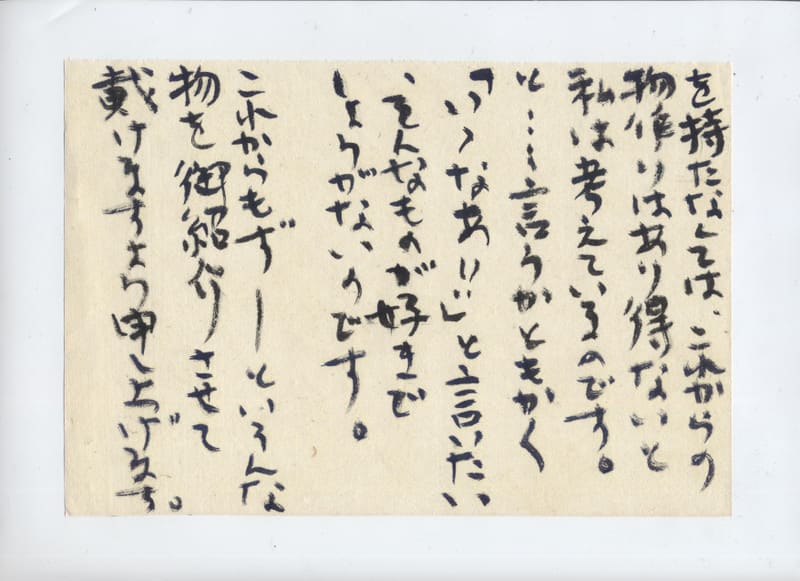 を持たなくては、これからの
物作りはあり得ないと
私は考えているのです。
と……言うかともかく
「いいなあ!!」と言いたい
、そんなものが好きで
しようがないのです。
これからもずーといろんな
物を御紹介させて
戴けますよう申し上げます。